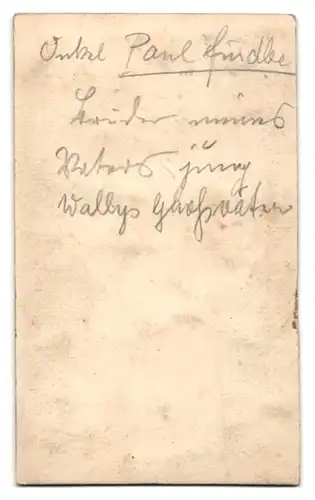 Onkel Paul
Bruder meines
Vaters jung
Wallys Großvater